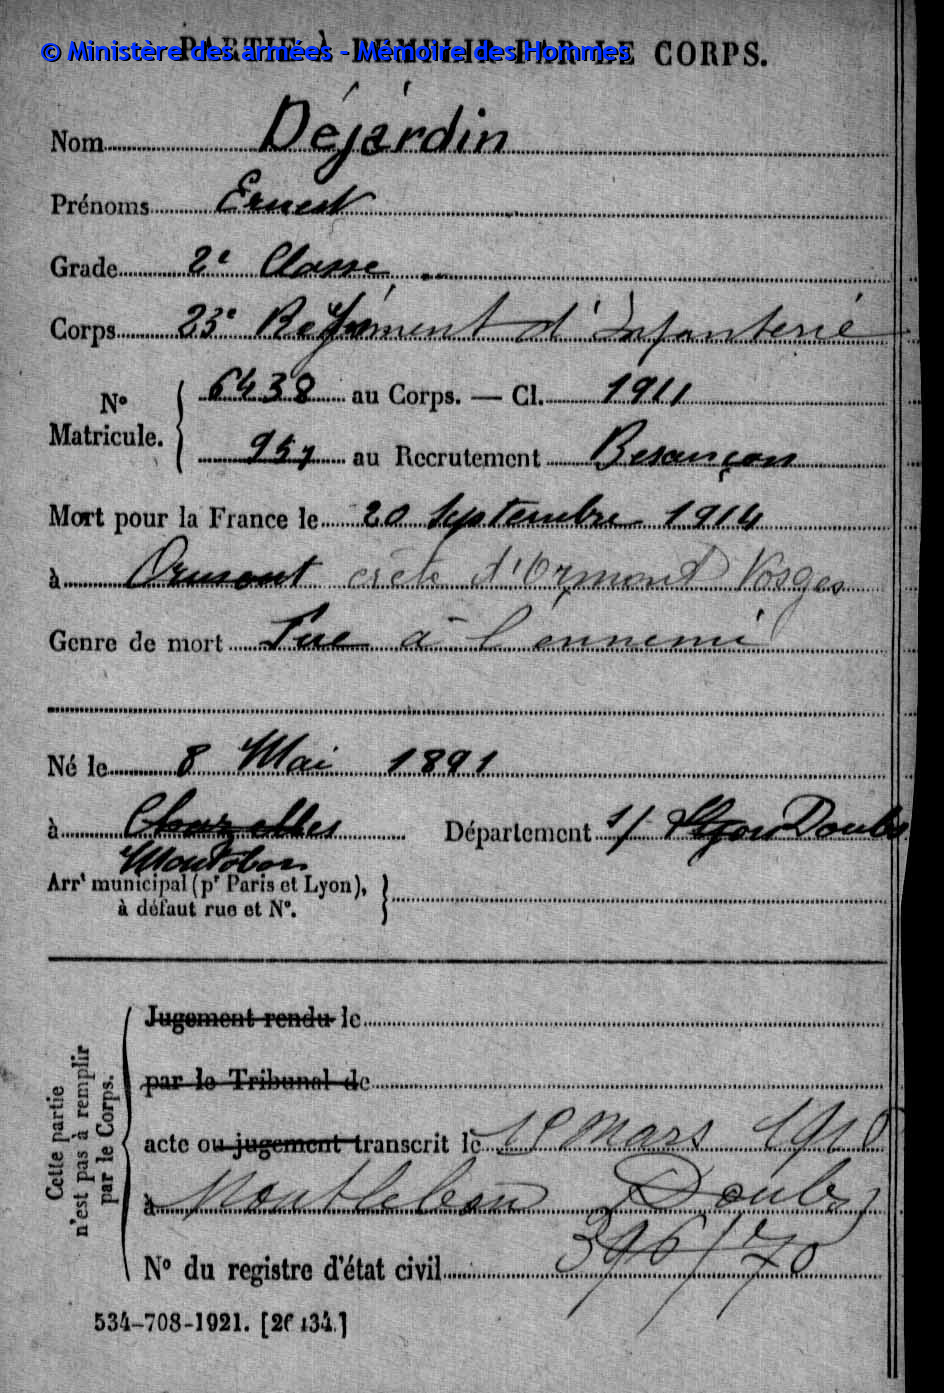 © Ministère des armées - Mémoire des Hommes
PARTIE À REMPLIR PAR LE CORPS.
Nom Déjardin
Prénoms Ernest
Grade 2e Classe
Corps 23e Régiment d'Infanterie
No Matricule. 6438 au Corps. — Cl. 1911
957 au Recrutement Besançon
Mort pour la France le 20 Septembre 1914
à Ormont crête d'Ormont Vosges
Genre de mort Tué à l'ennemi
Né le 8 Mai 1891
à Chazelles Département s/ Lyon Doubs
Montlebon
Arrt municipal (pr Paris et Lyon),
à défaut rue et No.
Cette partie
n'est pas à remplir
par le Corps.
Jugement rendu le
par le Tribunal de
acte ou jugement transcrit le mars
à Montlebon Doubs
No du registre d'état civil 396/70
534-708-1921.